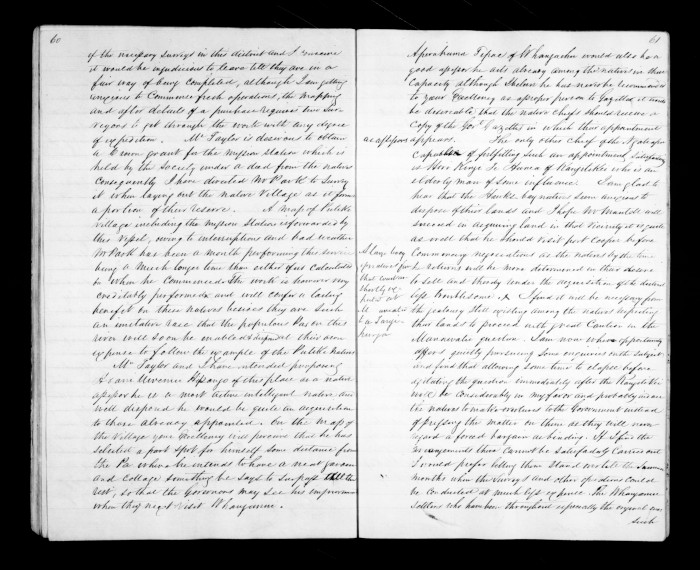 60
of the necessary surveys in this district and I conceive
it would be injudicious to leave till they are in a
fair way of being completed, although I am getting
anxious to commence fresh operations, the mapping
and after details of a purchase requires two Sur-
veyors to get through the work with any degree
of expedition. Mr Taylor is desirous to obtain
a Crown grant for the Mission Station which is
held by the Society under a deed from the natives
Consequently I have directed Mr Park to Survey
it when laying out the native Village as it forms
a portion of their reserve. A map of Putiki
village including the Mission Station is forwarded by
this vessel, owing to interruptions and bad weather
Mr Park has been a month performing this service
being a much longer time than either of us calculated
on when he commenced the work is however very
creditably performed and will confer a lasting
benefit on these natives besides they are such
an imitative race that the populous Pas on this
river will soon be enabled & disposed at their own
expense to follow the example of the Putiki natives
Mr Taylor and I have intended proposing
to have of this place as a native
assessor he is a most active intelligent native and
well disposed he would be quite an acquisition
to those already appointed. On the map of
the Village your Excellency will perceive that he has
selected a part spot for himself some distance from
the Pa where he intends to have a neat garden
and Cottage something he says to surpass all the
rest, so that the Governors may see his improvements
when they next visit Whanganui.
61
of Whangaehu would also be a
good assessor he acts already among the natives in that
Capacity although he has never been recommended
to your Excellency as a proper person to Gazette, it would
be desirable that the native Chiefs should receive a
Copy of the Govt Gazettes in which their appointment
as assessors appears. The only other Chief of the
Capable of fulfilling such an appointment
is King Te of Rangitikei who is an
elderly man of some influence. I am glad to
hear that the Hawkes bay natives seem anxious to
dispose of their lands and I hope Mr Mantell will
succeed in acquiring land in that vicinity it is quite
as well that he should visit port Cooper before
Commencing negociations as the natives by the time
he returns will be more determined in their desire
to sell and thereby render the acquisition of the district
less troublesome. I find it will be necessary from
the jealousy still existing among the natives respecting
their lands to proceed with great Caution in the
Manawatu question. I am now when opportunity
offers quietly pursuing some enquiries on the subject
and find that allowing some time to elapse before
agitating the question immediately after the Rangitikei
will be considerably in my favor and probably induce
the natives to make overtures to the Government instead
of pressing the matter on them as they will never
regard a forced bargain as binding. If I find the
arrangements there Cannot be satisfactorily Carried out
I would prefer letting them stand over till the Summer
months when the Surveys and other operations could
be Conducted at much less expense. The Whanganui
Settlers who have been throughout
such
A large
Manawatu